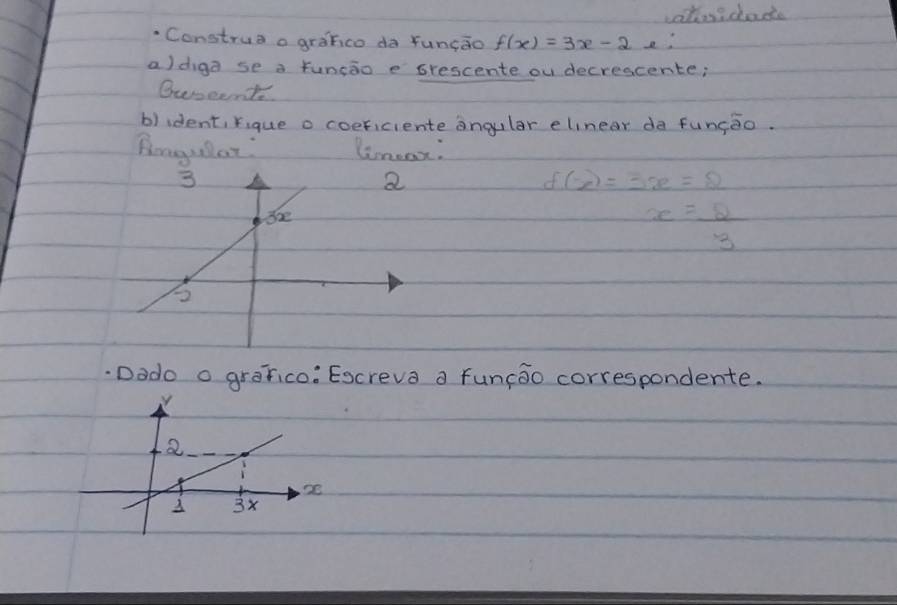 atividade
• Construa o gráfico da função f(x) = 3x - 2 e:
a) diga se a função e crescente ou decrescente;
Crescente
b) identifique o coeficiente ângular e linear da função.
Angular: linear:
3 2 f(x) = 3x = 2
3x x = 2
3
-2
• Dado o gráfico: Escreva a função correspondente.
y
2
x
1 3x